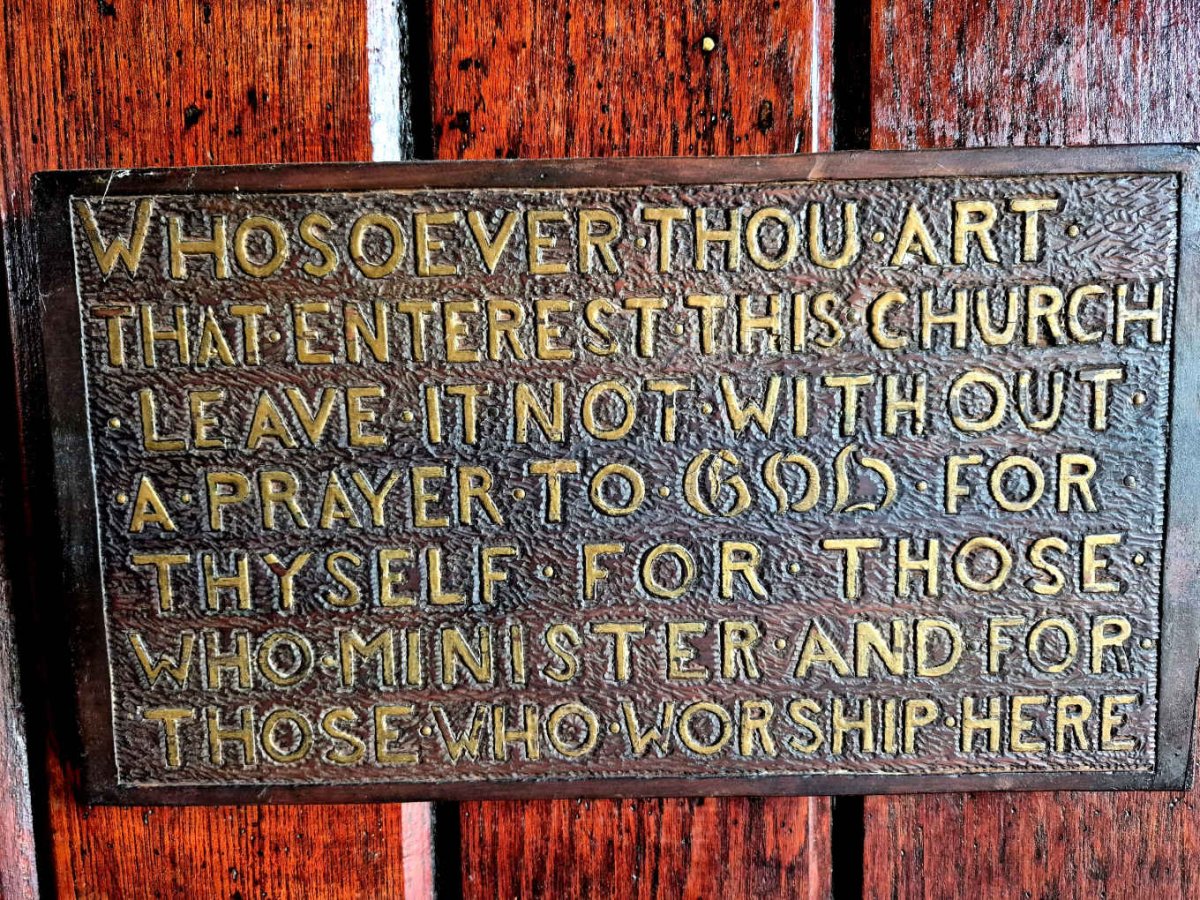 WHOSOEVER · THOU · ART ·
THAT · ENTEREST · THIS · CHURCH
· LEAVE · IT NOT · WITHOUT ·
· A · PRAYER · TO · GOD · FOR ·
THYSELF · FOR · THOSE ·
WHO · MINISTER · AND · FOR ·
THOSE · WHO · WORSHIP · HERE